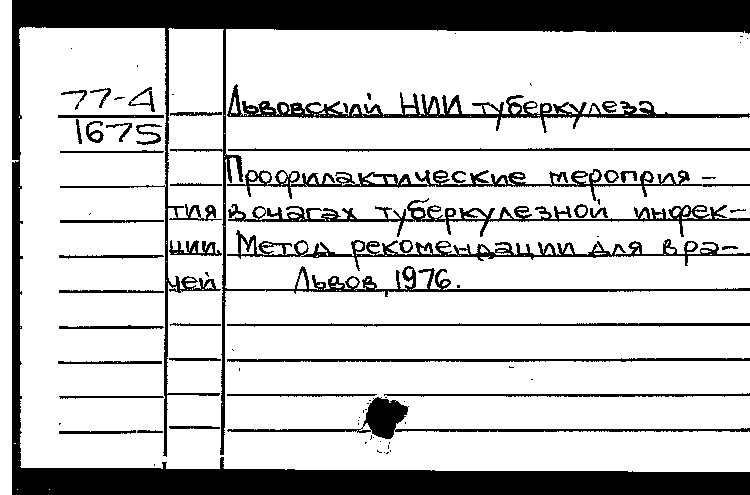 77-4 Львовский НИИ туберкулеза.
1675
Профилактические мероприя-
тия в очагах туберкулезной инфек-
ции. Метод. рекомендации для вра-
чей Львов, 1976.